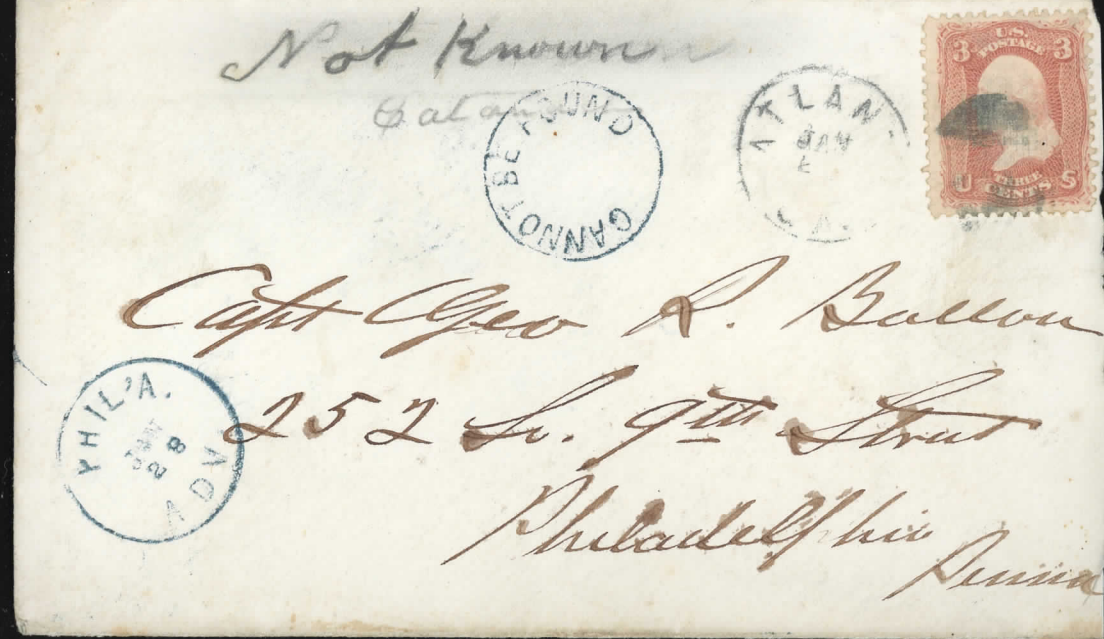 Not Known
CANNOT BE FOUND
ATLANT
JAN
G A.
3 U.S. POSTAGE 3
U THREE CENTS S
Capt Geo R. Ballou
252 So. 9th Street
Philadelphia
Penna
PHIL'A.
JUN
28
ADV